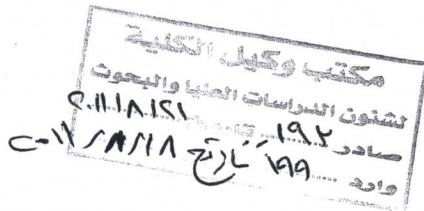 مكتب وكيل الكلية
لشئون الدراسات العليا والبحوث
صادر ١٩٢ ٢٠١١/٨/٢١
وارد ١٩٩ تاريخ ٢٠١١/٨/١٨